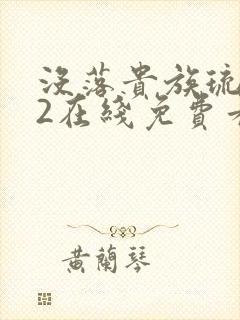 没落貴族琉
2在綫免費
黃蘭琴